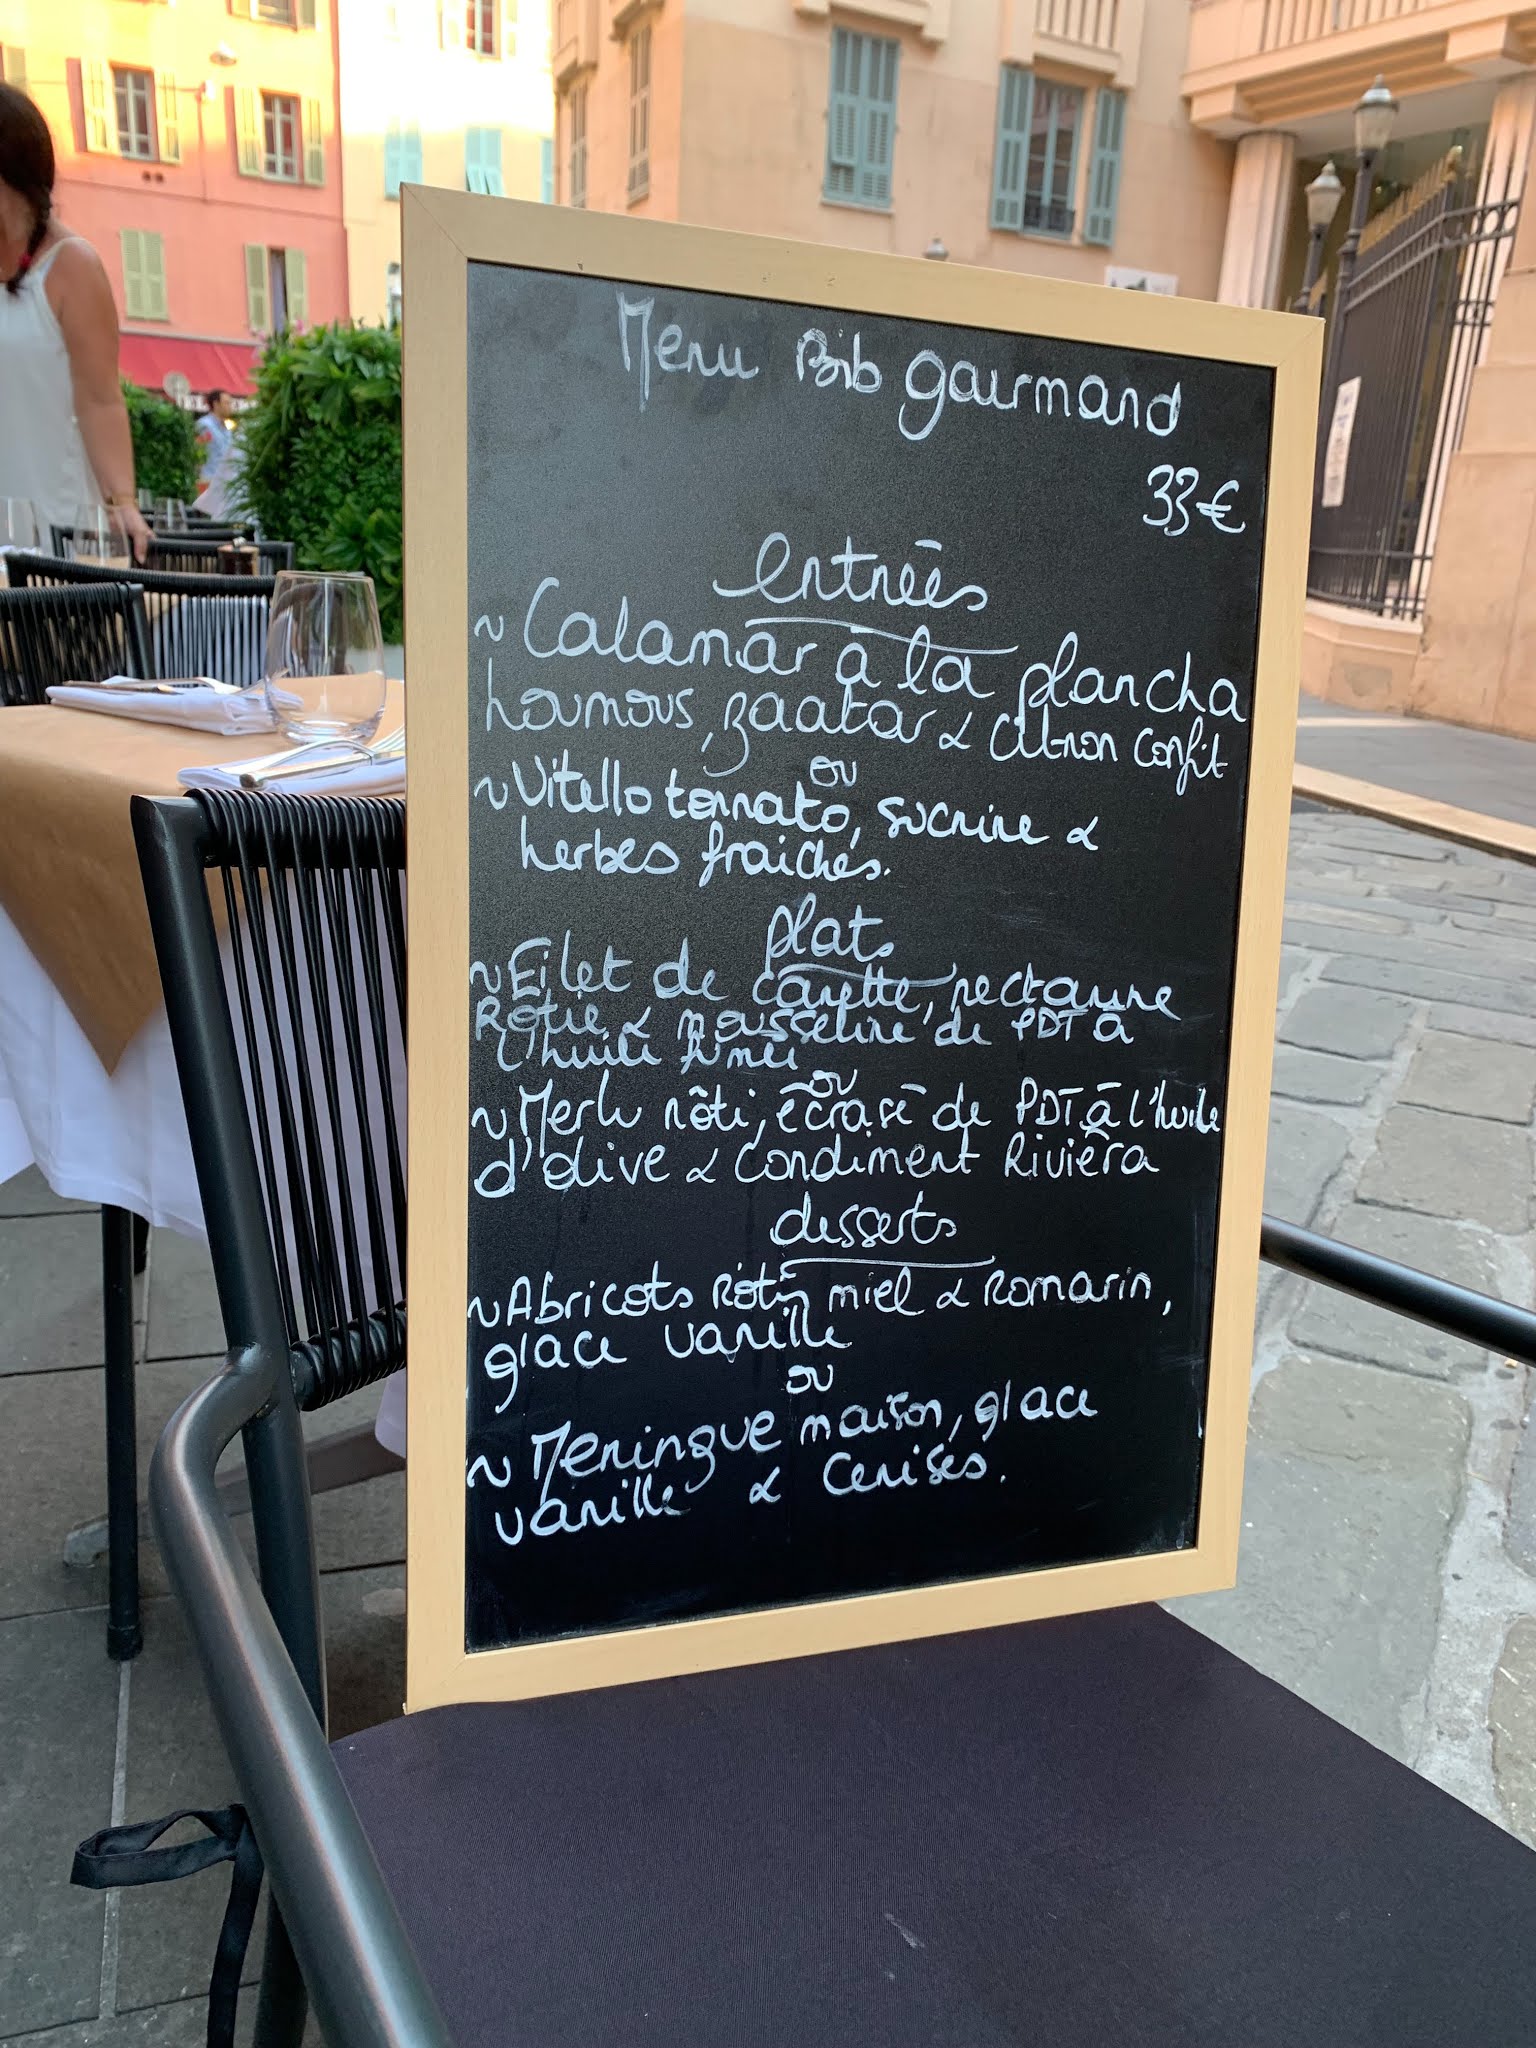 Menu Bib gourmand
33€
entrées
~ Calamar à la plancha
houmous, zaatar & Citron confit
ou
~ Vitello tonnato, sucrine &
herbes fraiches.
plats
~ Filet de canette, nectarine
Rôtie & mousseline de PDT à
l'huile fumée
ou
~ Merlu rôti, écrasé de PDT à l'huile
d'olive & Condiment Riviera
desserts
~ Abricots Rôtis miel & Romarin,
glace vanille
ou
~ Meringue maison, glace
vanille & Cerises.